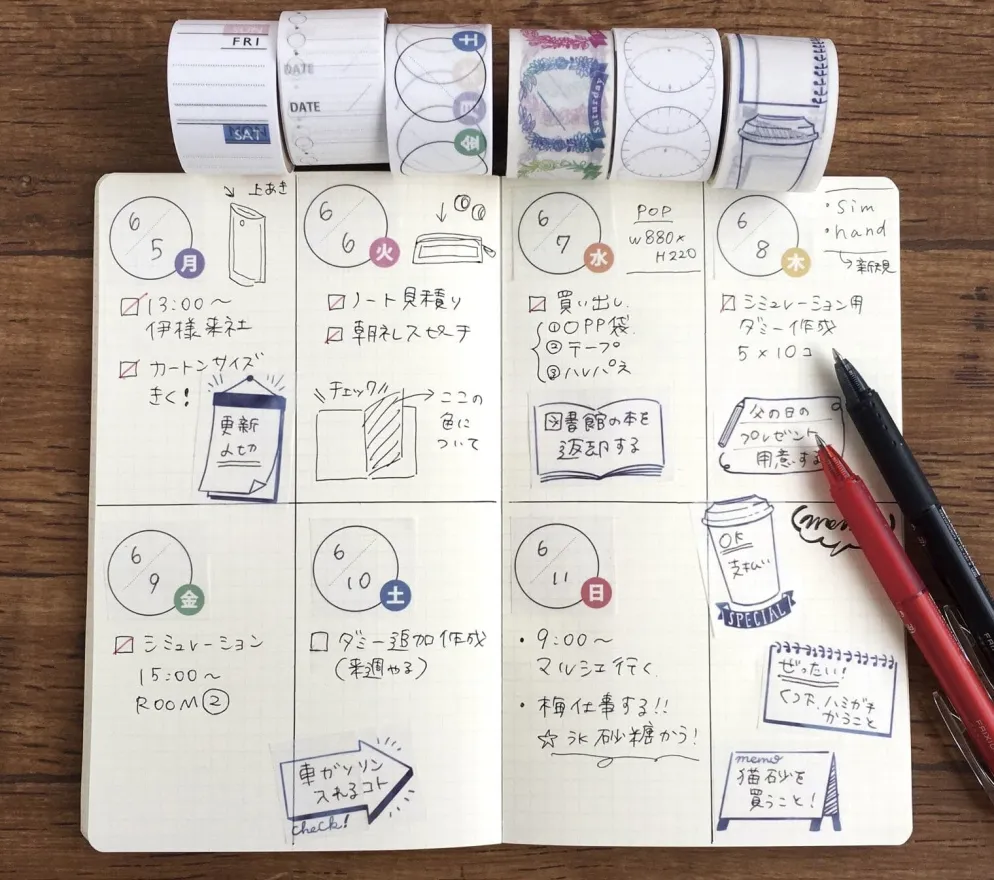 FRI
SAT
DATE
DATE
土
金
Saturday
6/5
月
上あき
13:00〜
伊様来社
カートンサイズ
きく!
更新
〆切
6/6
火
ノート見積り
朝礼スピーチ
チェック
ここの
色に
ついて
6/7
水
POP
W880×
H220
買い出し
①OPP袋
②テープ
③ハレパネ
図書館の本を
返却する
6/8
木
・sim
・hand
シミュレーション用
ダミー作成
5×10コ
父の日の
プレゼント
用意する
6/9
金
シミュレーション
15:00〜
ROOM②
6/10
土
ダミー追加作成
(来週やる)
車ガソリン
入れるコト
check!
6/11
日
・9:00〜
マルシェ行く
・梅仕事する!!
☆氷砂糖かう!
OK
支払い
SPECIAL
ぜったい!
くつ下、ハミガキ
かうこと
memo
猫砂を
買うこと!